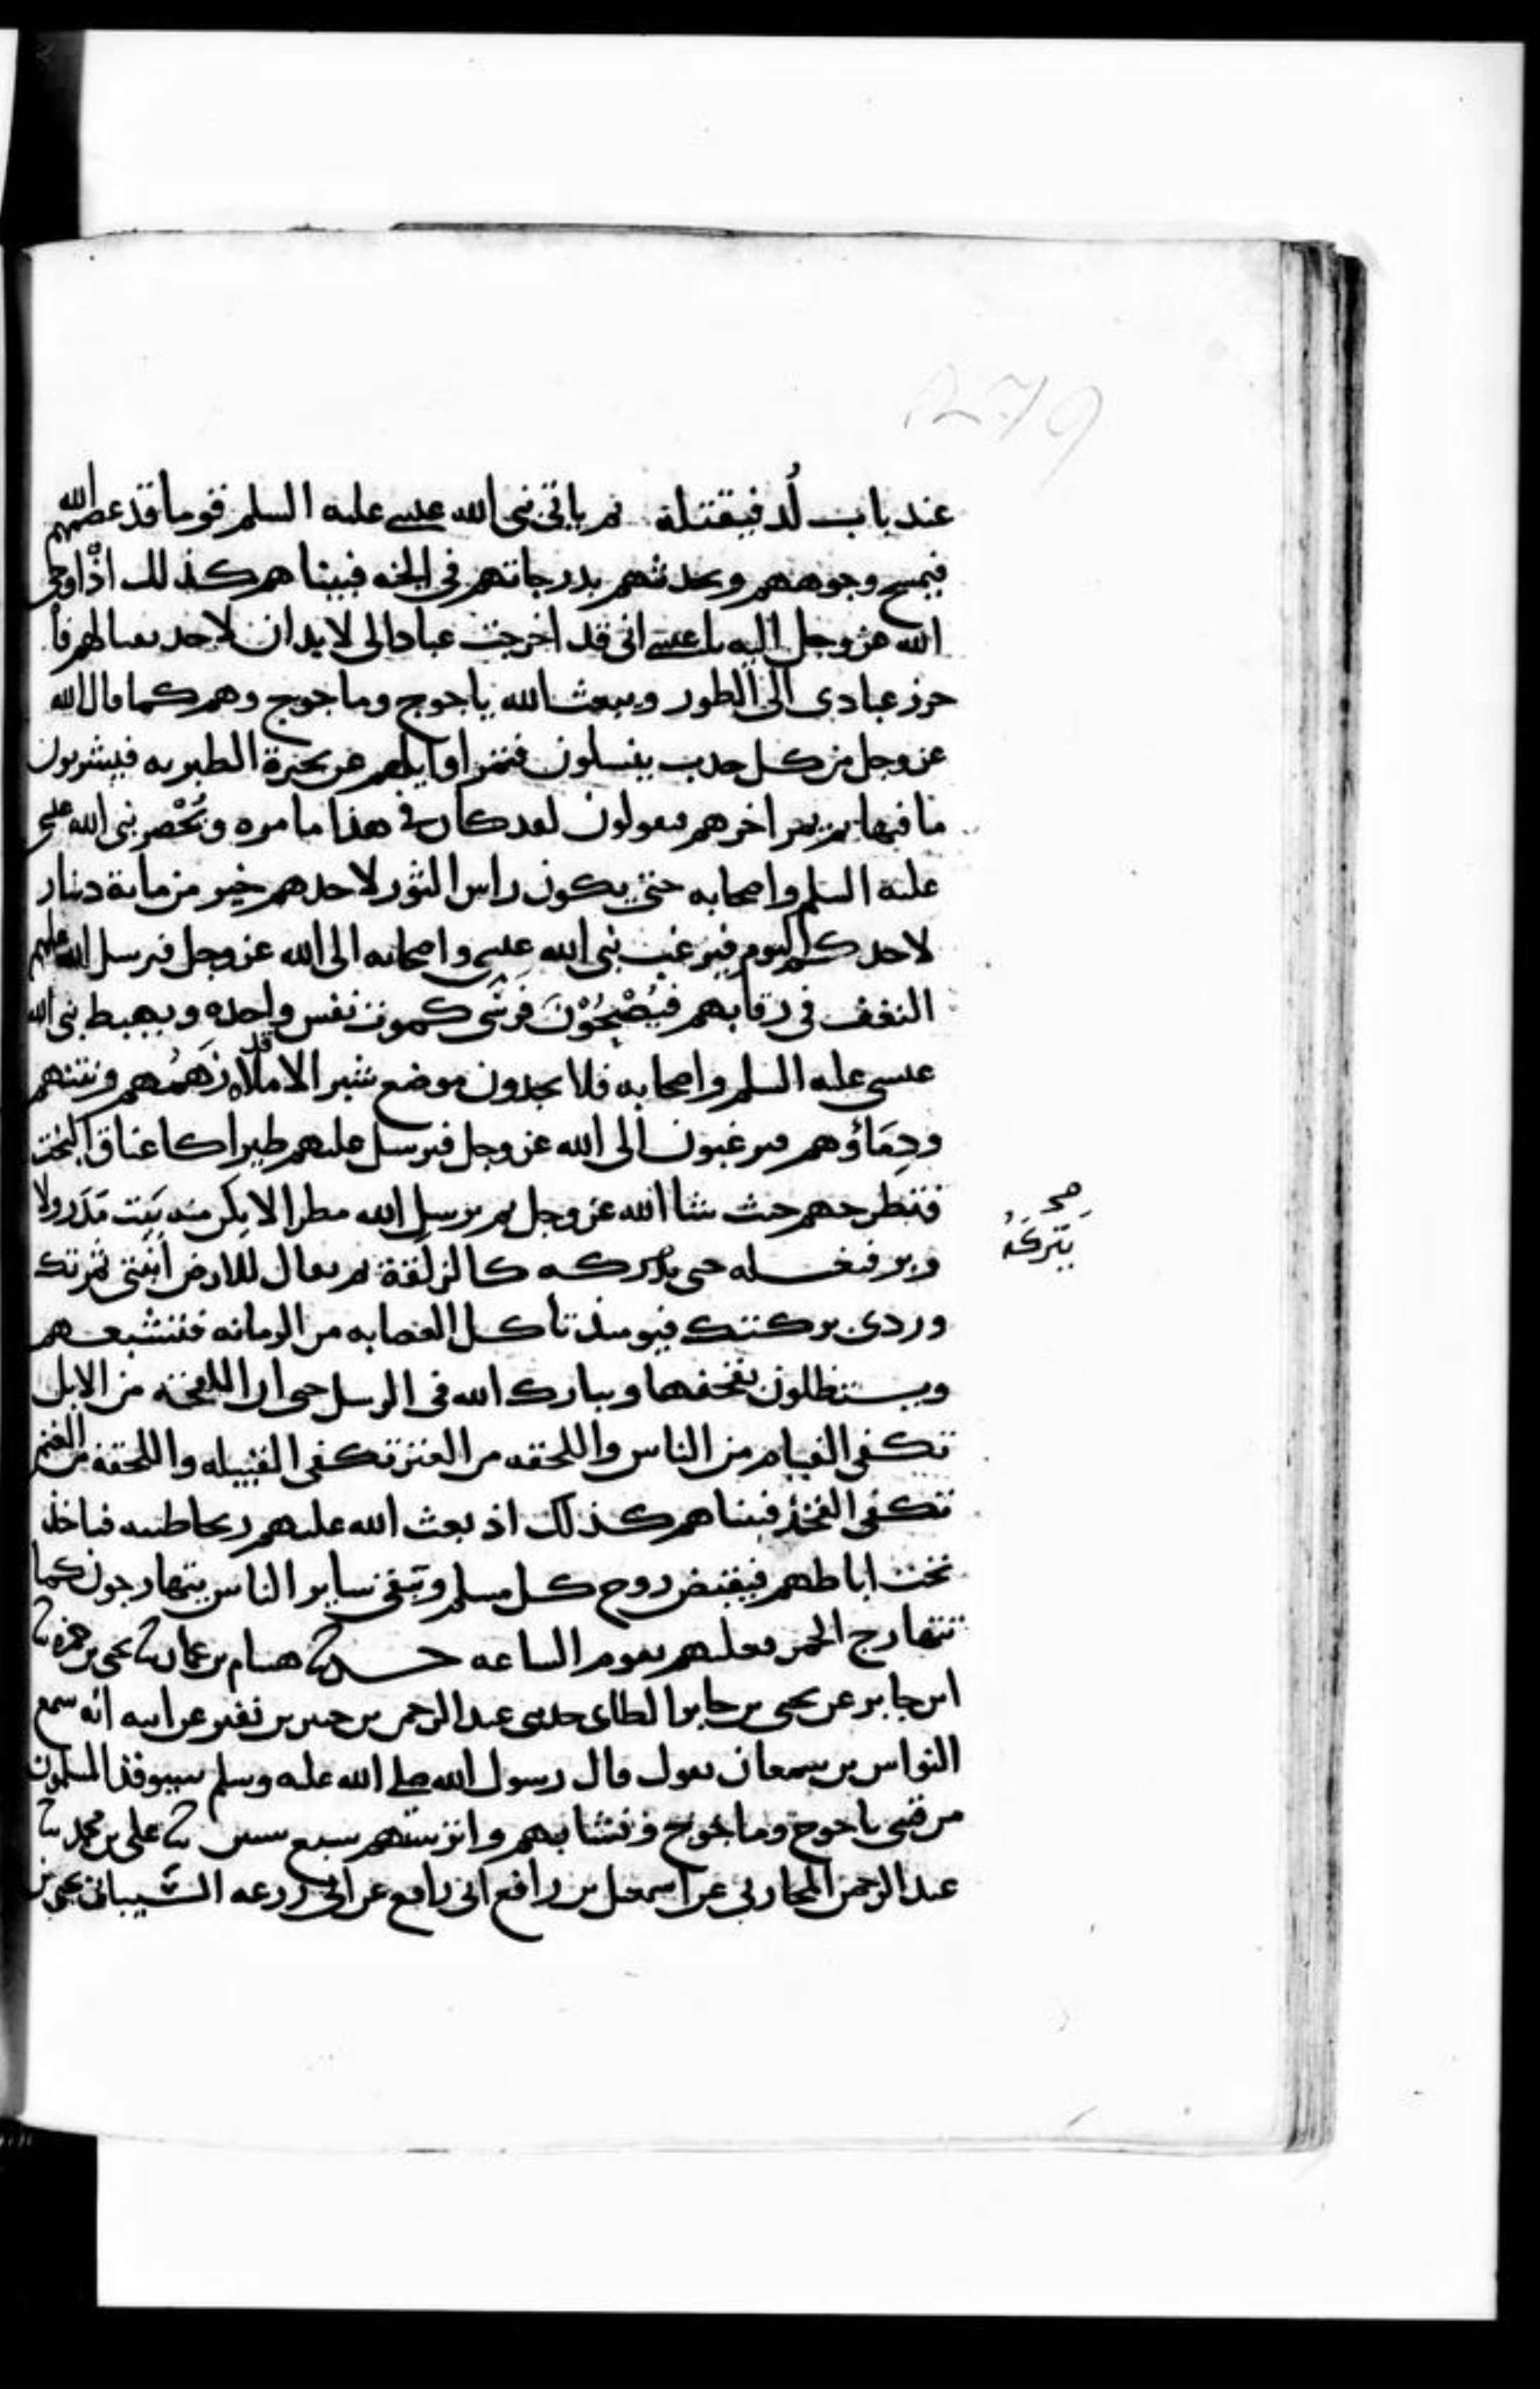 279
عند باب لُد فيقتله ثم ياتي نبي الله عيسى عليه السلم قوما قد عصمهم الله
فيمسح وجوههم ويحدثهم بدرجاتهم في الجنة فبينا هم كذلك اذ اوحى
الله عز وجل اليه يا عيسى اني قد اخرجت عبادا لي لا يدان لاحد بقتالهم فأ
حرز عبادي الى الطور ويبعث الله ياجوج وماجوج وهم كما قال الله
عز وجل من كل حدب ينسلون فيمر اوايلهم على بحيرة الطبرية فيشربون
ما فيها ثم يمر اخرهم فيقولون لقد كان في هذا ما مره ويُحْصر نبي الله عيسى
عليه السلم واصحابه حتى يكون راس الثور لاحدهم خير من ماية دينار
لاحدكم اليوم فيرغب نبي الله عيسى واصحابه الى الله عز وجل فيرسل الله عليهم
النغف في رقابهم فيُصْبِحُوْنَ فَرْسَى كموت نفس واحده ويهبط نبي الله
عيسى عليه السلم واصحابه فلا يجدون موضع شبر الا قد ملاه زَهَمُهم ونتنهم
ودِمَاؤهم فيرغبون الى الله عز وجل فيرسل عليهم طيرا كاعناق البخت
فتطرحهم حيث شا الله عز وجل ثم يرسل الله مطرا لا يكن منه بَيت مَدَر ولا
صح
يتركَهُ
وبر فيغسله حتى يتركه كالزلقة ثم يقال للارض انبتي ثمرتك
وردي بركتك فيوميذ تاكل العصابه من الرمانه فتشبعهم
ويستظلون بقحفها ويبارك الله في الرسل حتى ان اللقحة من الابل
تكفي الفيام من الناس واللقحه من البقر تكفي القبيله واللقحه من الغنم
تكفي الفخذ فبينا هم كذلك اذ بعث الله عليهم ريحا طيبه فتاخذ
تحت اباطهم فيقبض روح كل مسلم وتبقى ساير الناس يتهارجون كما
تتهارج الحمر فعليهم تقوم الساعه حدثنا هشام بن عمار ثنا يحيى بن حمزه ثنا
ابن جابر عن يحيى بن جابر الطاي حدثني عبد الرحمن بن جبير بن نفير عن ابيه انه سمع
النواس بن سمعان يقول قال رسول الله صلى الله عليه وسلم سيوقد المسلمون
من قسي ياجوج وماجوج ونشابهم واترستهم سبع سنين ثنا علي بن محمد ثنا
عبد الرحمن المحاربي عن اسمعيل بن رافع ابي رافع عن ابي زرعه الشيباني يحيى بن